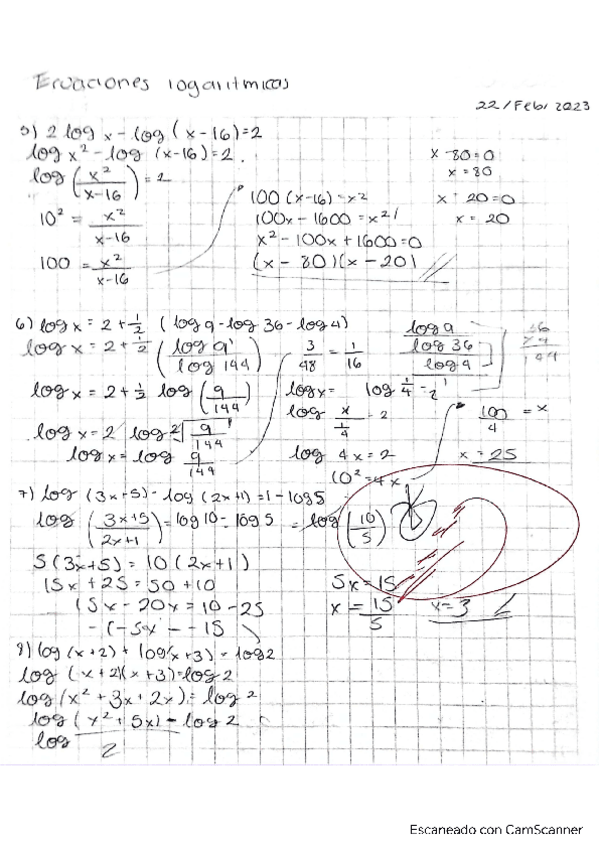 Ecuaciones logaritmicas
22/Febr 2023
5) 2 log x - log (x-16)=2
log x² - log (x-16)=2.
log (x²/x-16) = 2
10² = x²/x-16
100 = x²/x-16
100 (x-16) = x²
100x - 1600 = x²
x² - 100x + 1600 = 0
(x - 80)(x - 20)
x - 80 = 0
x = 80
x - 20 = 0
x = 20
6) log x = 2 + ½ (log 9 - log 36 - log 4)
log x = 2 + ½ (log 9/log 144)
log x = 2 + ½ log (9/144)
log x = 2 log ²√9/144
log x = log 9/144
3/48 = 1/16
log x = log ¼ = 2
log x/¼ = 2
log 4x = 2
10² = 4x
log 9
log 36
log 4
36
144
100/4 = x
x = 25
7) log (3x+5) - log (2x+1) = 1 - log 5
log (3x+5/2x+1) = log 10 - log 5 = log (10/5)
5(3x+5) = 10(2x+1)
15x + 25 = 50 + 10
15x - 20x = 10 - 25
- (-5x - - 15
5x = 15
x = 15/5
x = 3
8) log (x+2) + log(x+3) = log2
log (x+2)(x+3) = log 2
log (x² + 3x + 2x) = log 2
log (x² + 5x) = log 2
log
2
Escaneado con CamScanner